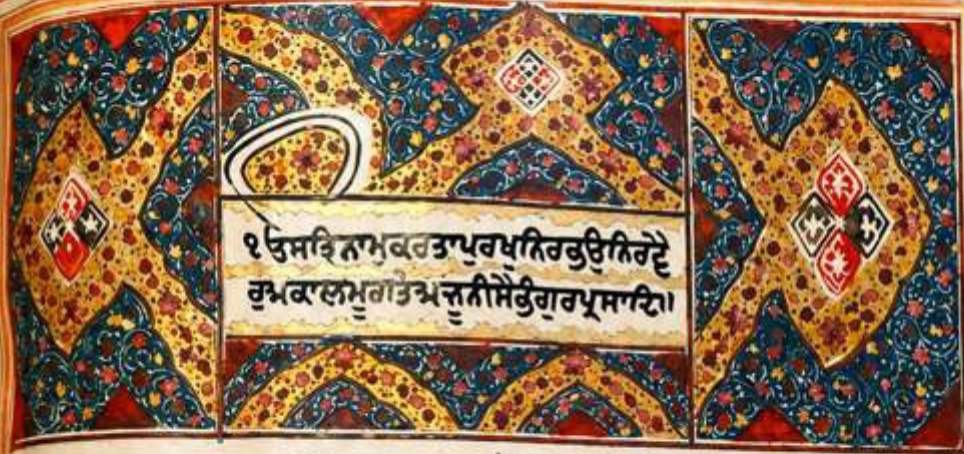 ੴਸਤਿਨਾਮੁਕਰਤਾਪੁਰਖੁਨਿਰਭਉਨਿਰਵੈ
ਰੁਅਕਾਲਮੂਰਤਿਅਜੂਨੀਸੈਭੰਗੁਰਪ੍ਰਸਾਦਿ॥